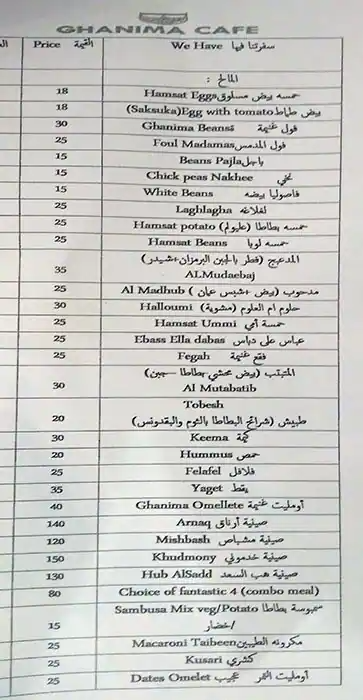 GHANIMA CAFE
Price القيمة We Have سفرتنا فيها
المالح :
18 Hamsat Eggs حمسه بيض مسلوق
18 (Saksuka)Egg with tomato بيض طماط
30 Ghanima Beans فول غنيمة
25 Foul Madamas فول المدمس
15 Beans Pajla باجل
15 Chick peas Nakhee نخي
15 White Beans فاصوليا بيضه
25 Laghlagha لغلاغه
25 Hamsat potato حمسه بطاطا (عليوم)
25 Hamsat Beans حمسه لوبا
المدعبج (فطر بالجبن البرمزان+شيدر)
35 ALMudaebaj
25 Al Madhub مدحوب (بيض +شبس عمان )
30 Halloumi حلوم ام العلوم (مشوية)
25 Hamsat Ummi حمسة أمي
25 Ebass Ella dabas عباس على دباس
25 Fegah فقع غنيمة
المتبتب (بيض محشي بطاطا -جبن)
30 Al Mutabatib
Tobesh
20 طبيش (شرائح البطاطا بالثوم والبقدونس)
30 Keema كيمة
20 Hummus حمص
25 Felafel فلافل
35 Yaget يقط
40 Ghanima Omellete أومليت غنيمة
140 Arnaq صينية أرناق
120 Mishbash صينية مشباص
150 Khudmony صينية خدموني
130 Hub AlSadd صينية هب السعد
80 Choice of fantastic 4 (combo meal)
Sambusa Mix veg/Potato سمبوسة بطاطا
15 /خضار
25 Macaroni Taibeen مكرونه الطيبين
25 Kusari كشري
25 Dates Omelet أومليت التمر عجيب